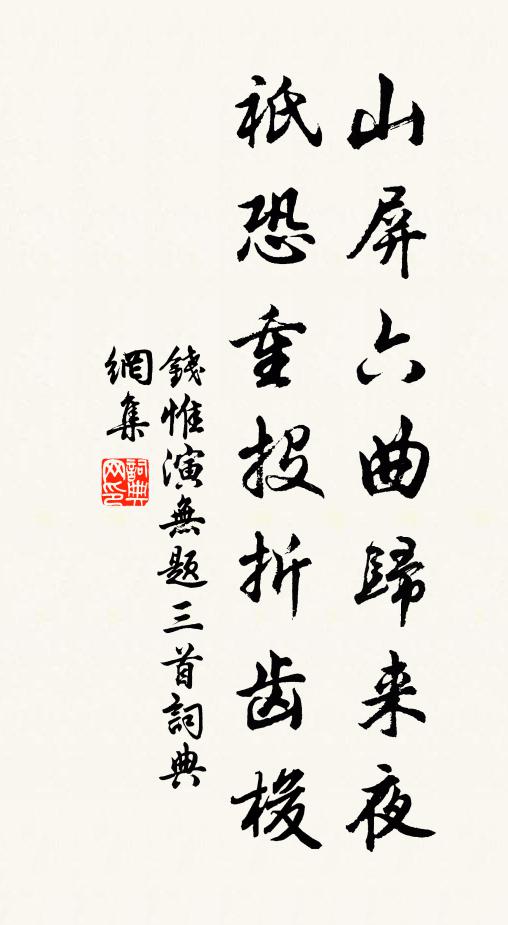 山屏六曲歸来夜
祇恐重投折齿梭
錢惟演無題三首詞典
網集
詞典
网印